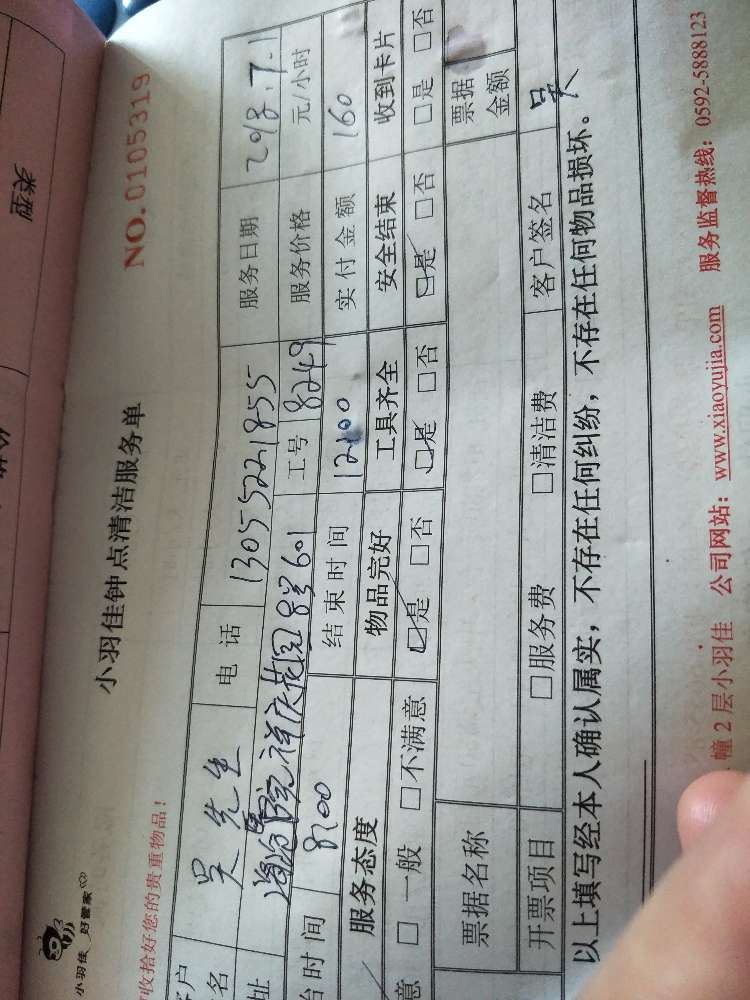 类型
小羽佳 好管家
小羽佳钟点清洁服务单
NO.0105319
收拾好您的贵重物品!
吴先生 电话 13055221855 服务日期 2018.7.1
祥庆花园8号601 服务价格 元/小时
工号 8249
时间 8:00 结束时间 12:00 实付金额 160
服务态度 物品完好 工具齐全 安全结束 收到卡片
意 □一般 □不满意 ☑是 □否 ☑是 □否 ☑是 □否 □是 □否
票据名称 票据金额
开票项目 □服务费 □清洁费 客户签名 吴
以上填写经本人确认属实,不存在任何纠纷,不存在任何物品损坏。
幢2层小羽佳 公司网站:www.xiaoyujia.com 服务监督热线:0592-5888123